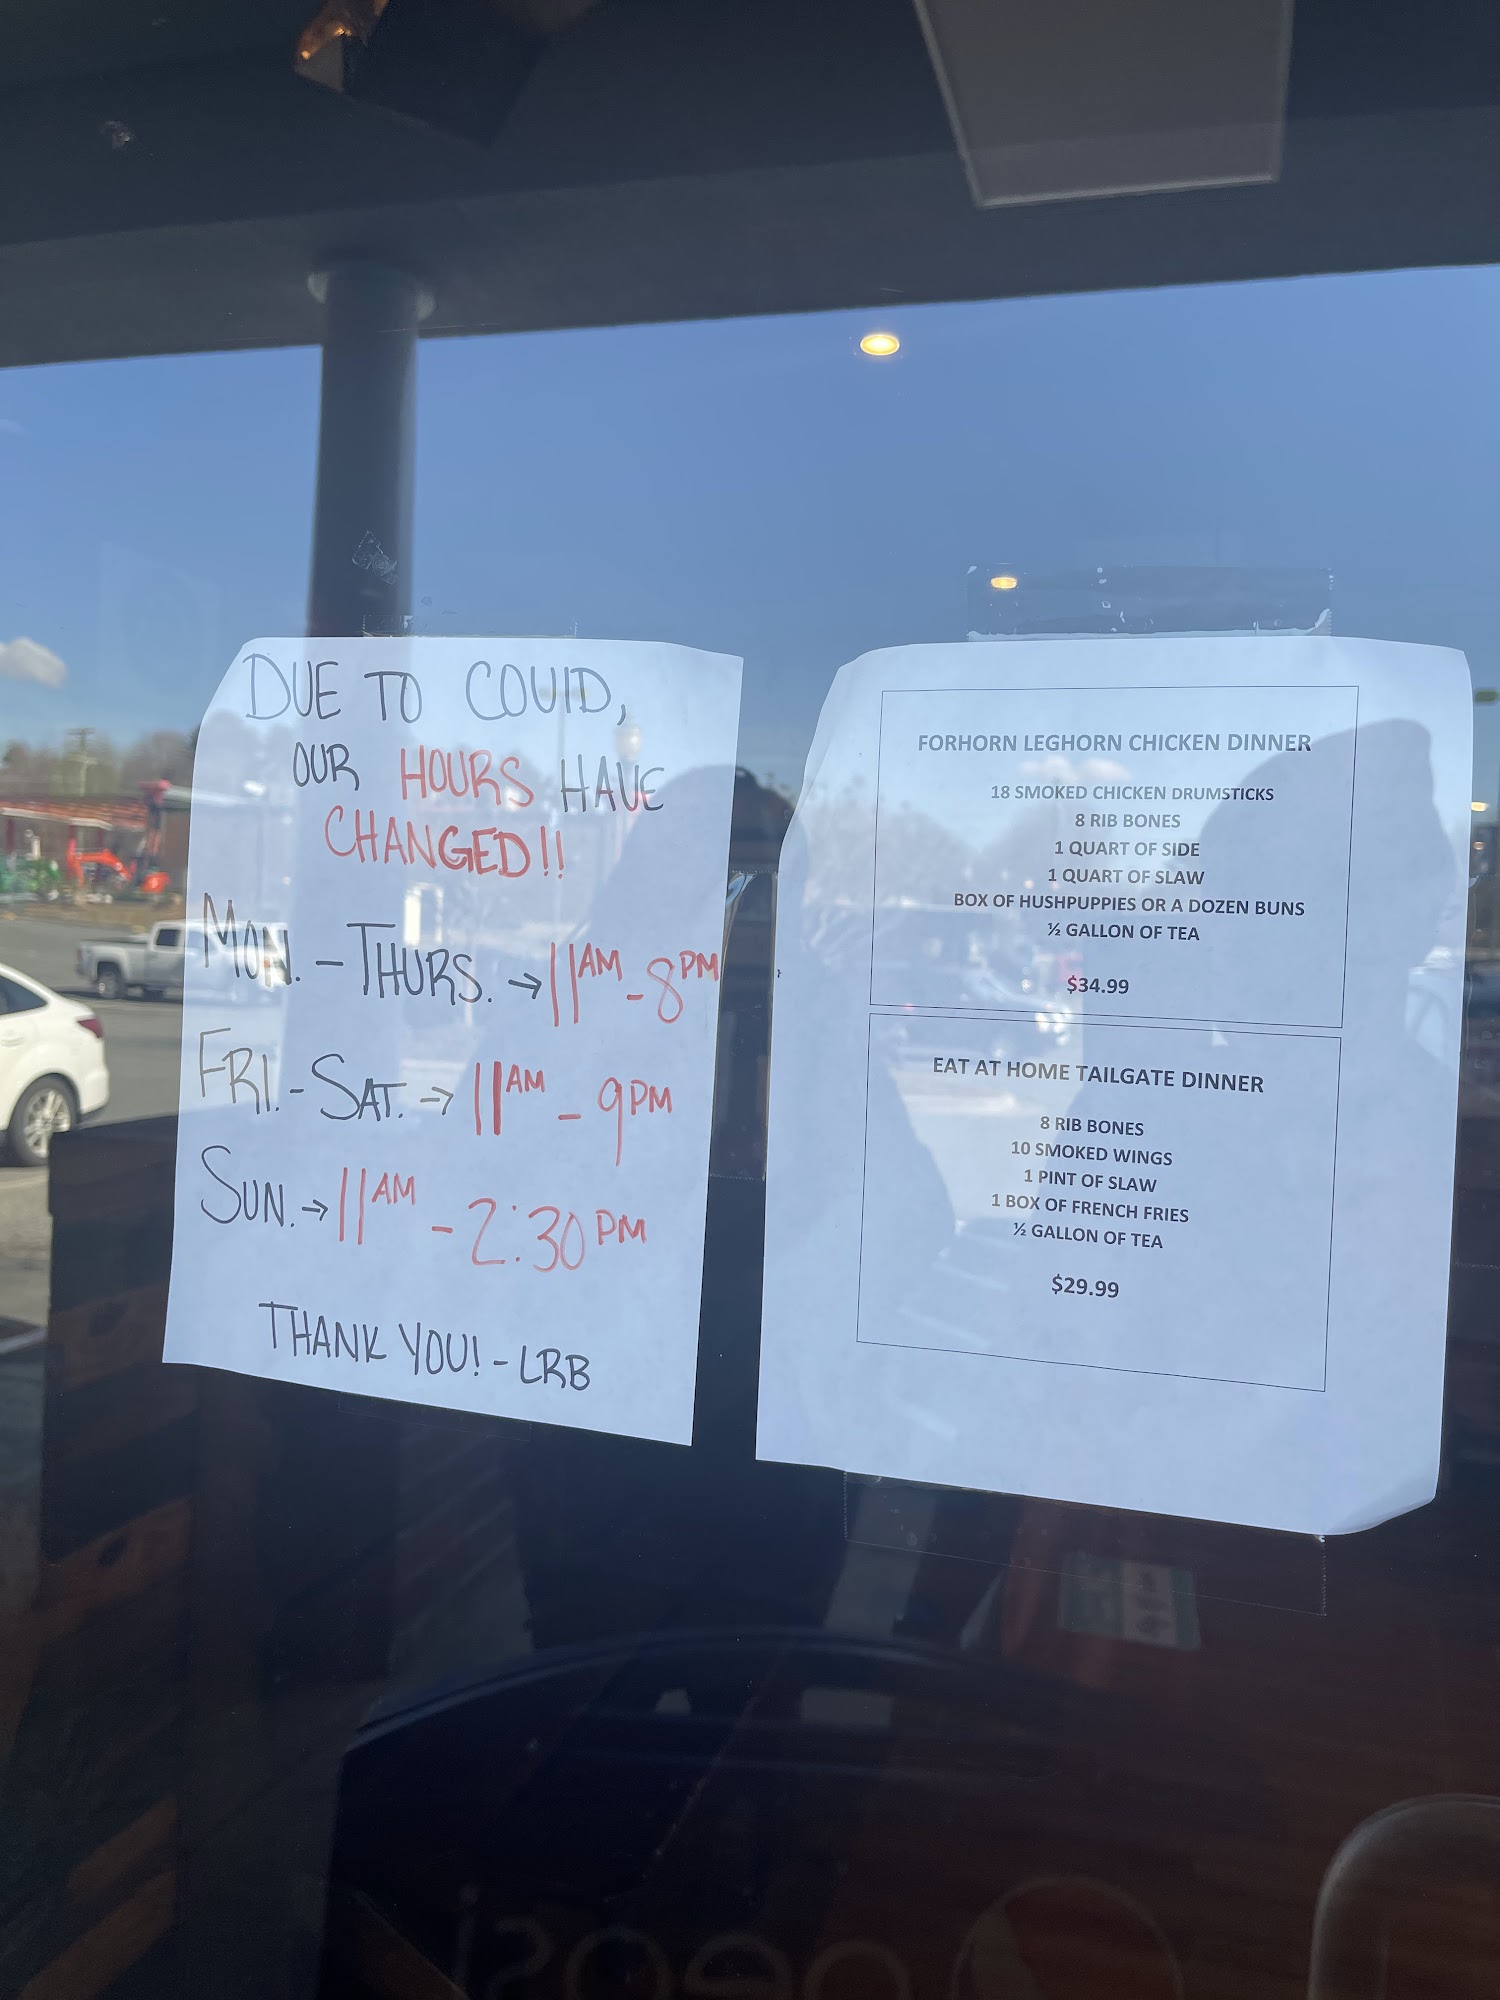 DUE TO COVID,
OUR HOURS HAVE
CHANGED!!
MON. - THURS. → 11AM - 8PM
FRI. - SAT. → 11AM - 9PM
SUN. → 11AM - 2:30PM
THANK YOU! - LRB
FORHORN LEGHORN CHICKEN DINNER
18 SMOKED CHICKEN DRUMSTICKS
8 RIB BONES
1 QUART OF SIDE
1 QUART OF SLAW
BOX OF HUSHPUPPIES OR A DOZEN BUNS
½ GALLON OF TEA
$34.99
EAT AT HOME TAILGATE DINNER
8 RIB BONES
10 SMOKED WINGS
1 PINT OF SLAW
1 BOX OF FRENCH FRIES
½ GALLON OF TEA
$29.99